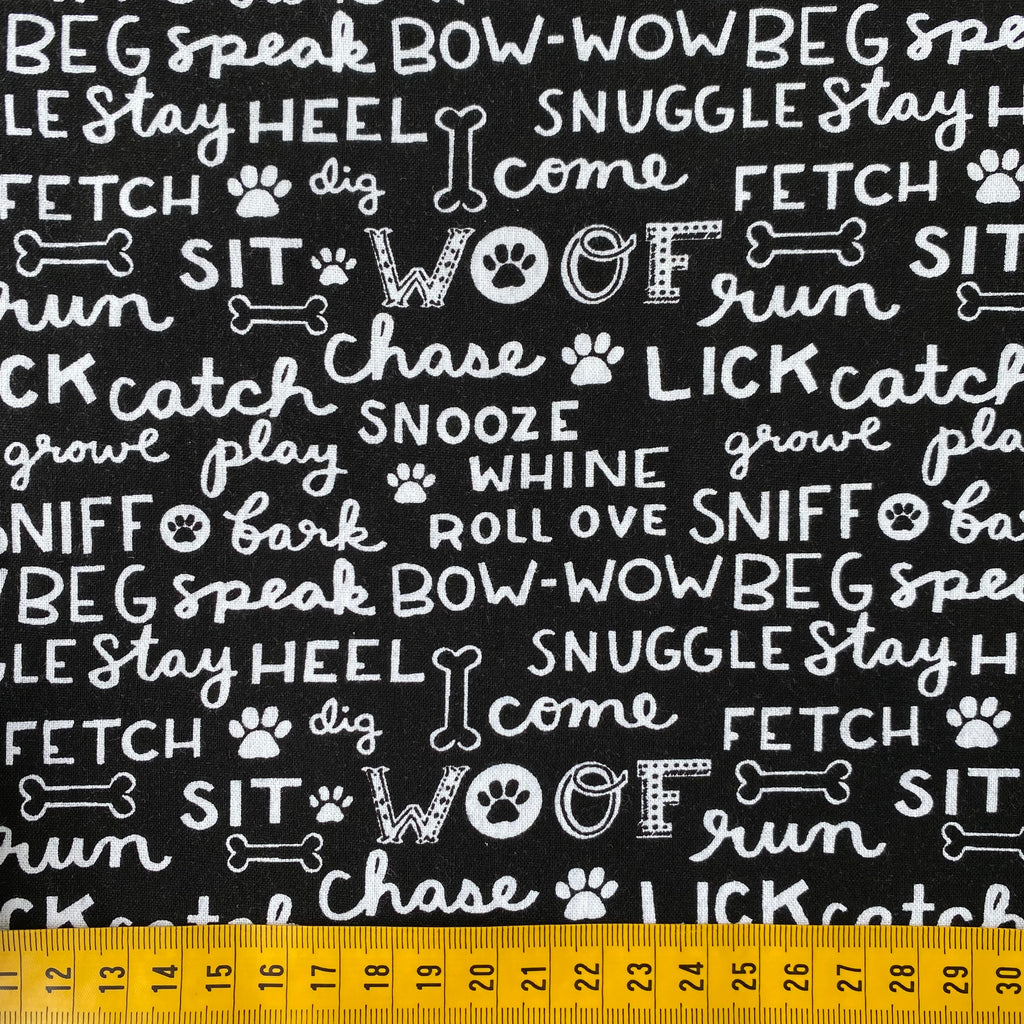 BEG speak BOW-WOW BEG spe
LE Stay HEEL SNUGGLE Stay H
FETCH dig come FETCH
SIT WOOF SIT
run run
chase
CK catch LICK catch
SNOOZE
growl play growl pla
WHINE
SNIFF bark ROLL OVE SNIFF bar
BEG speak BOW-WOW BEG spea
GLE Stay HEEL SNUGGLE Stay H
FETCH dig come FETCH
SIT WOOF SIT
run run
chase
CK catch LICK catch
11 12 13 14 15 16 17 18 19 20 21 22 23 24 25 26 27 28 29 30